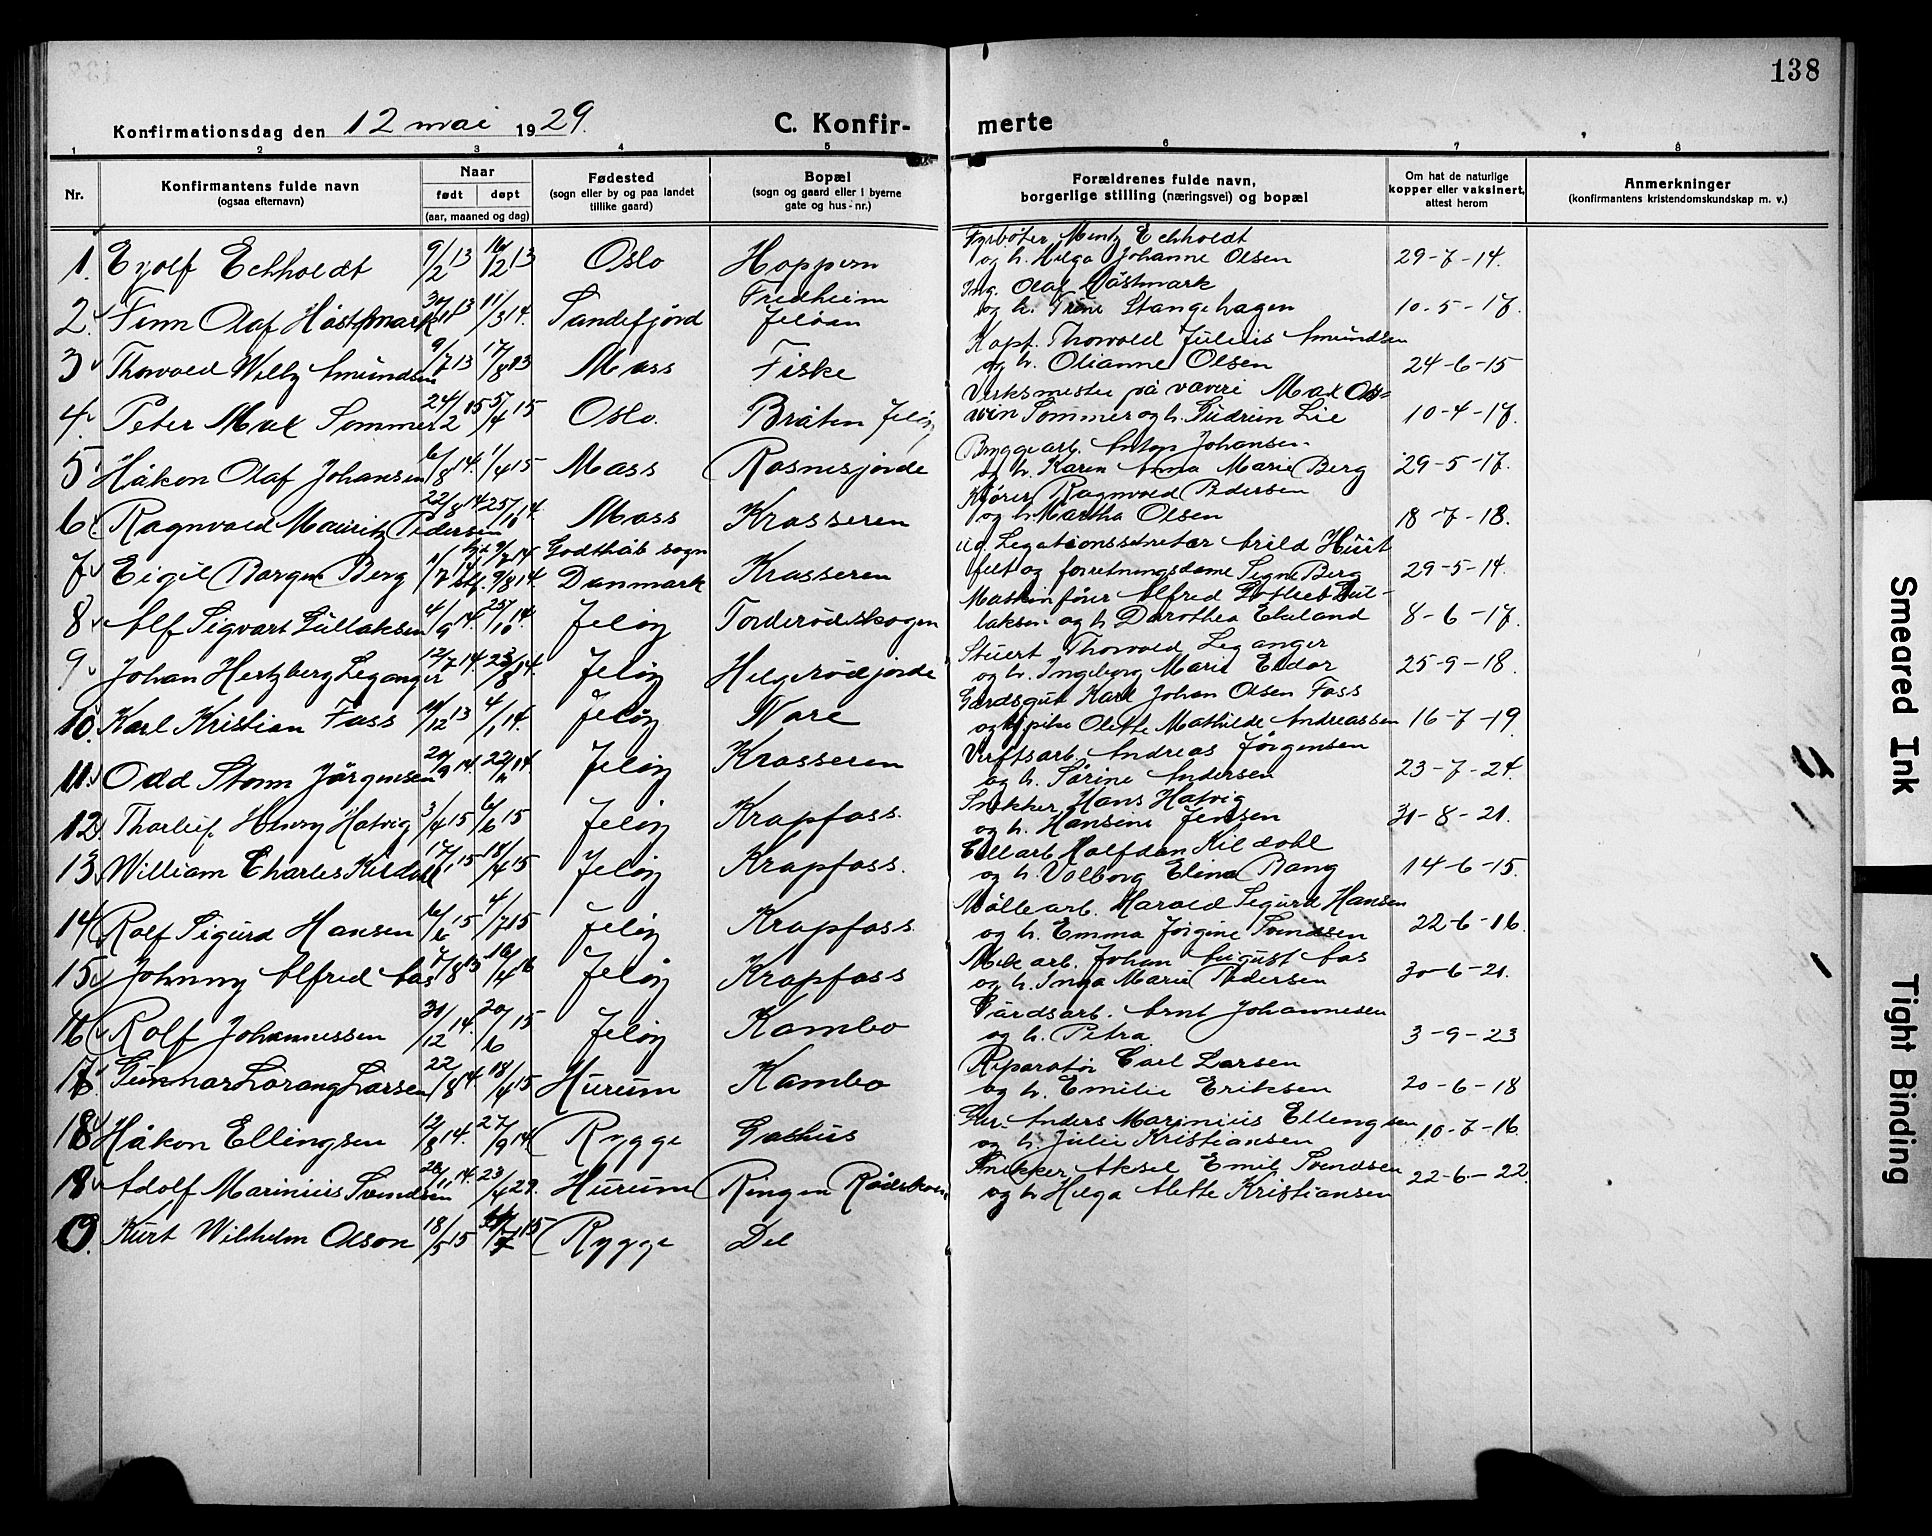 138
Konfirmationsdag den 12 mai 1929.
C. Konfirmerte
1 2 3 4 5 6 7 8
Nr. Konfirmantens fulde navn (ogsaa efternavn) Naar født døpt (aar, maaned og dag) Fødested (sogn eller by og paa landet tillike gaard) Bopæl (sogn og gaard eller i byerne gate og hus-nr.) Forældrenes fulde navn, borgerlige stilling (næringsvei) og bopæl Om hat de naturlige kopper eller vaksinert, attest herom Anmerkninger (konfirmantens kristendomskundskap m. v.)
1. Eyolf Echholdt 9/2 13 16/12 13 Oslo Hoppern Fyrbøter Mentz Echholdt og h. Helga Johanne Olsen 29-7-14.
2. Finn Olaf Høstmark 11/3 14. Sandefjord Fredheim Jeløen Ing. Olaf Høstmark og h. Trine Stangehagen 10-5-17.
3 Thorvald Willy Amundsen 9/7 13 17/8 13 Moss Fiske Kapt. Thorvald Julius Amundsen og h. Olianne Olsen 24-6-15
4. Peter Max Sommer 24/2 15 5/4 15 Oslo. Bråten Jeløy Verksmester på væveri Max Sommer og h. Gudrun Lie 10-4-17.
5 Håkon Olaf Johansen 6/8 14. 1/4 15 Moss Rosnesjorde Bryggearb. Anton Johansen og h. Karen Anna Marie Berg 29-5-17.
6. Ragnvald Mauritz Pedersen 22/8 14 25/10 14. Moss Krosseren Kjører Ragnvald Pedersen og h. Martha Olsen 18-7-18.
7 Eigil Borgen Berg 9/8 14 Godthåb sogn Danmark Krosseren Legationssekretær Arild Huitfelt og forretningsdame Signe Berg 29-5-14.
8 Alf Sigvart Gullaksen 4/9 14. 25/10 14. Jeløy Torderødskogen Maskinfører Alfred Gullaksen og h. Dorothea Ekeland 8-6-17.
9 Johan Hertzberg Leganger 12/7 14. 23/8 14. Jeløy Helgerødjorde Stuert Thorvald Leganger og h. Ingeborg Marie Eidor 25-9-18.
10. Karl Kristian Foss 12 13 4/1 14. Jeløy Nore Gårdsgut Karl Johan Olsen Foss og Olefte Mathilde Andreassen 16-7-19
11. Odd Storm Jørgensen 20/9 14. 22/11 14. Jeløy Krosseren Verftsarb. Andreas Jørgensen og h. Sørine Andersen 23-7-24.
12 Thorleif Henry Hatvig 3/4 15 6/6 15 Jeløy Krapfoss. Snekker Hans Hatvig og h. Hansine Jensen 31-8-21.
13. William Charles Kildahl 17/1 15 18/4 15 Jeløy Krapfoss. Cell arb. Halfdan Kildahl og h. Valborg Elina Bang 14-6-15.
14 Rolf Sigurd Hansen 6/6 15 4/7 15 Jeløy Krapfoss Møllearb. Harald Sigurd Hansen og h. Emma Jørgine Svendsen 22-6-16.
15 Johnny Alfred Aas 7/8 13 16/4 16 Jeløy Krapfoss Mek arb. Johan August Aas og h. Inga Marie Pedersen 30-6-21.
16 Rolf Johannessen 31/12 14. 20/6 15 Jeløy Kambo Gårdsarb. Arnt Johannesen og h. Petra 3-9-23
17 Gunnar Lorang Larsen 22/8 14. 18/4 15 Hurum Kambo Reparatør Carl Larsen og h. Emilie Eriksen 20-6-18
18 Håkon Ellingsen 12/8 14. 27/9 14 Rygge Gashus Anders Marinius Ellengsen og h. Julie Kristiansen 10-7-16
18 Adolf Marinius Svendsen 28/11 14. 23/4 29. Hurum Ringen Rødskoven Snekker Aksel Emil Svendsen og h Helga Alette Kristiansen 22-6-22.
0. Kurt Wilhelm Olson 18/5 15 Rygge Del
Smeared Ink
Tight Binding